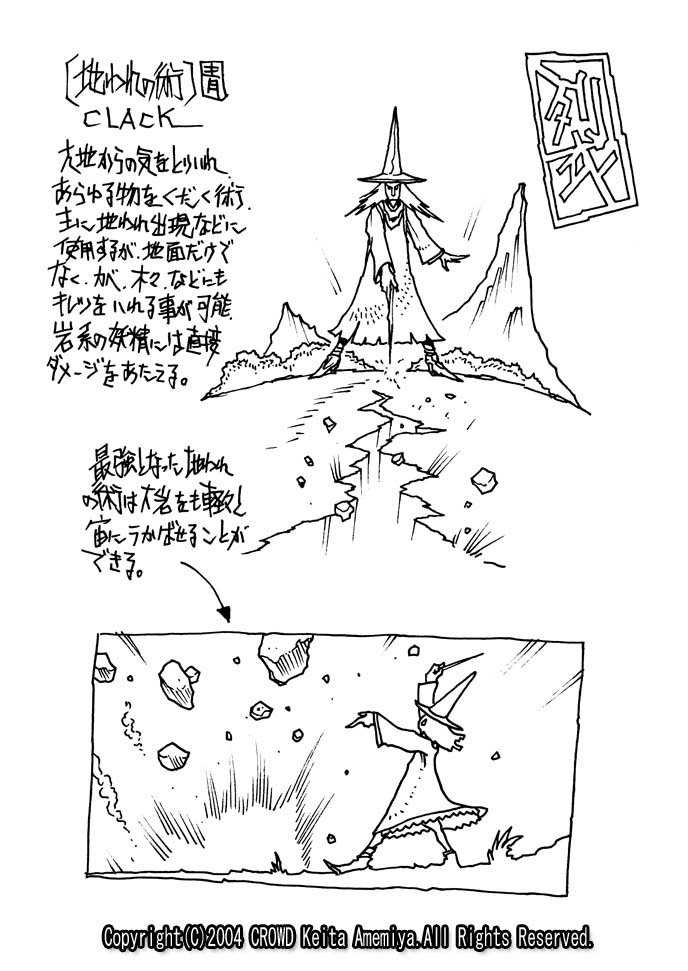 [地われの術] 青
CLACK
大地からの気をとりいれ、
あらゆる物をくだく術.
主に地われ出現などに
使用するが、地面だけで
なく、カベ、木々、などにも
キレツをいれる事が可能.
岩系の妖精には直接
ダメージをあたえる。
最強となった地われ
の術は大岩をも軽々と
宙にうかばせることが
できる。
Copyright(C)2004 CROWD Keita Amemiya.All Rights Reserved.